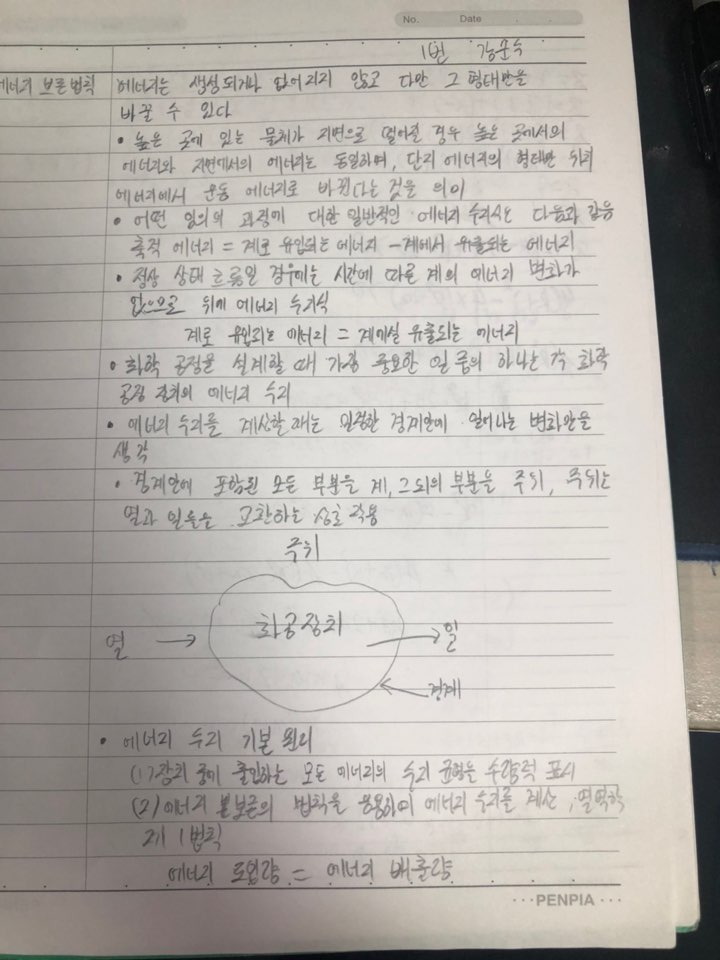 No. Date
1번
에너지 보존 법칙 에너지는 생성되거나 없어지지 않고 다만 그 형태만을
바꿀 수 있다
• 높은 곳에 있는 물체가 지면으로 떨어질 경우 높은 곳에서의
에너지와 지면에서의 에너지는 동일하며, 단지 에너지의 형태만 위치
에너지에서 운동 에너지로 바뀐다는 것을 의미
• 어떤 임의의 과정에 대한 일반적인 에너지 수지식는 다음과 같음
축적 에너지 = 계로 유입되는 에너지 - 계에서 유출되는 에너지
• 정상 상태 흐름일 경우에는 시간에 따른 계의 에너지 변화가
없으므로 위에 에너지 수지식
계로 유입되는 에너지 = 계에실 유출되는 에너지
• 화학 공정을 설계할 때 가장 중요한 일 중의 하나는 각 화학
공정 장치의 에너지 수지
• 에너지 수지를 계산할 때는 일정한 경계안에 일어나는 변화만을
생각
• 경계안에 포함된 모든 부분을 계, 그 외의 부분을 주위, 주위는
열과 일들을 교환하는 상호 작용
주위
화공장치
열 → → 일
← 경계
• 에너지 수지 기본 원리
(1) 장치 중에 출입하는 모든 에너지의 수지 균형을 수량적 표시
(2) 에너지 보존의 법칙을 응용하여 에너지 수지를 계산, 열역학
제 1법칙
에너지 도입량 = 에너지 배출량
PENPIA